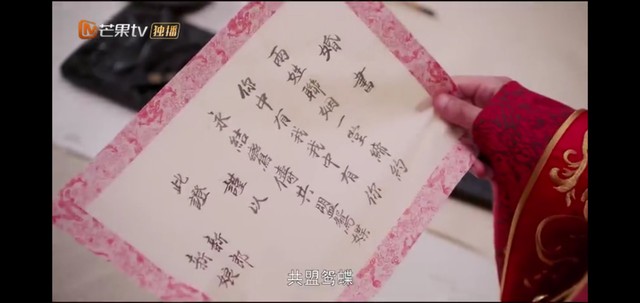 芒果tv 独播
婚書
兩姓聯姻一堂締約
你中有我我中有你
永結鸞儔共盟鴛蝶
謹以
此證
新郎
新娘
共盟鸳蝶